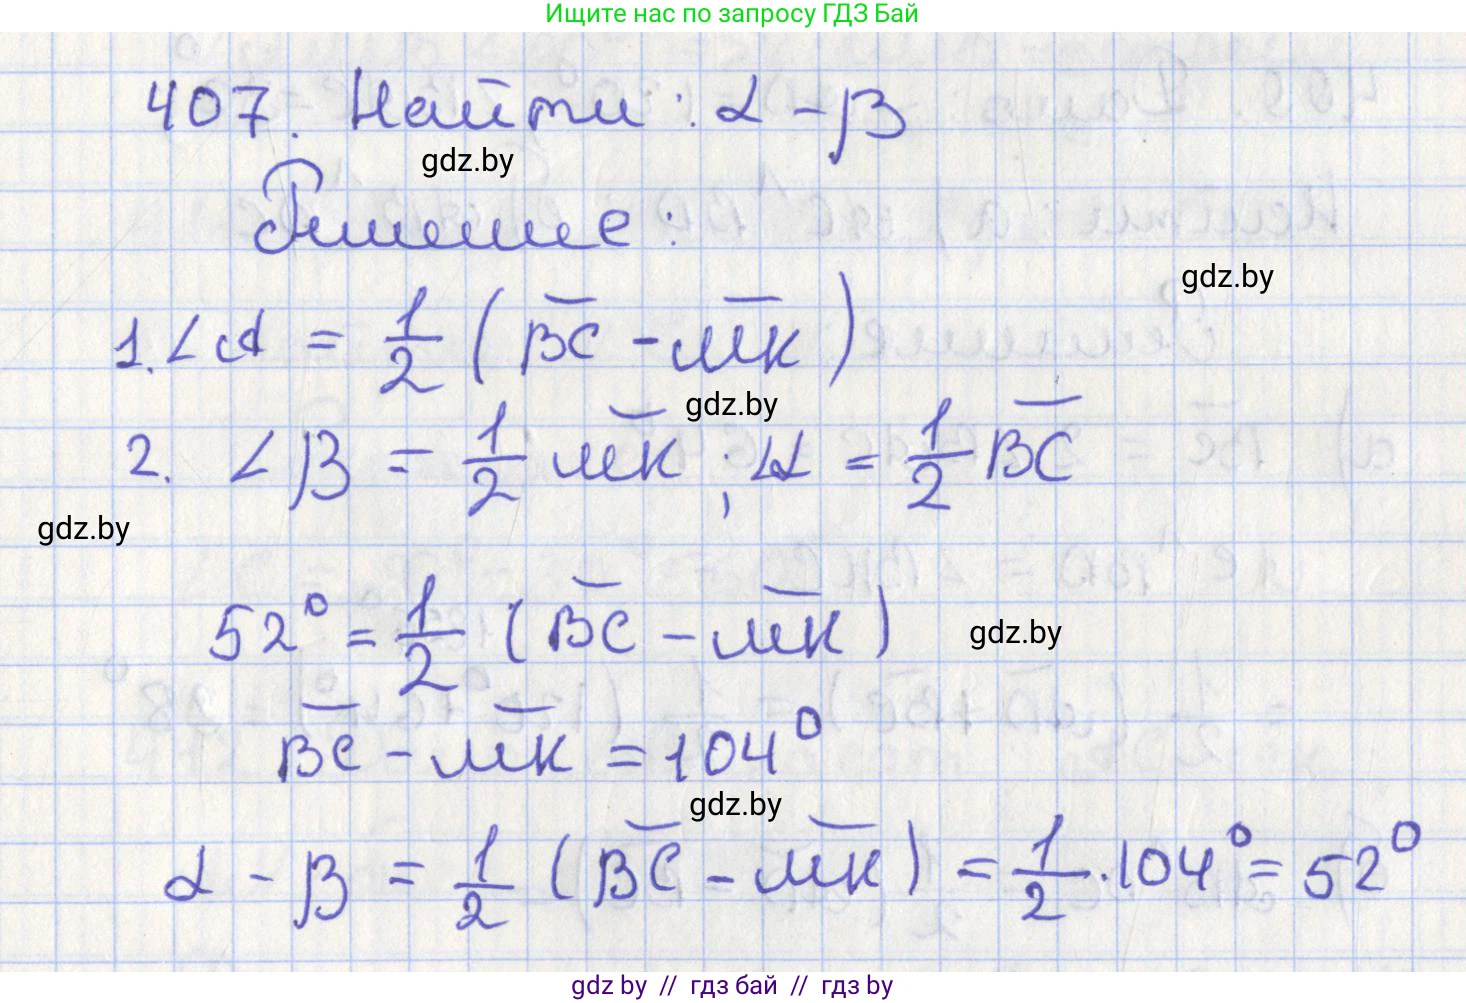 Ищите нас по запросу ГДЗ Бай
407. Найти: α - β
gdz.by
Решение:
gdz.by
1. ∠A = 1/2 (BC - MK)
gdz.by
2. ∠β = 1/2 MK; ∠α = 1/2 BC
gdz.by
52° = 1/2 (BC - MK)
gdz.by
BC - MK = 104°
gdz.by
α - β = 1/2 (BC - MK) = 1/2 · 104° = 52°
gdz by // гдз бай // гдз by